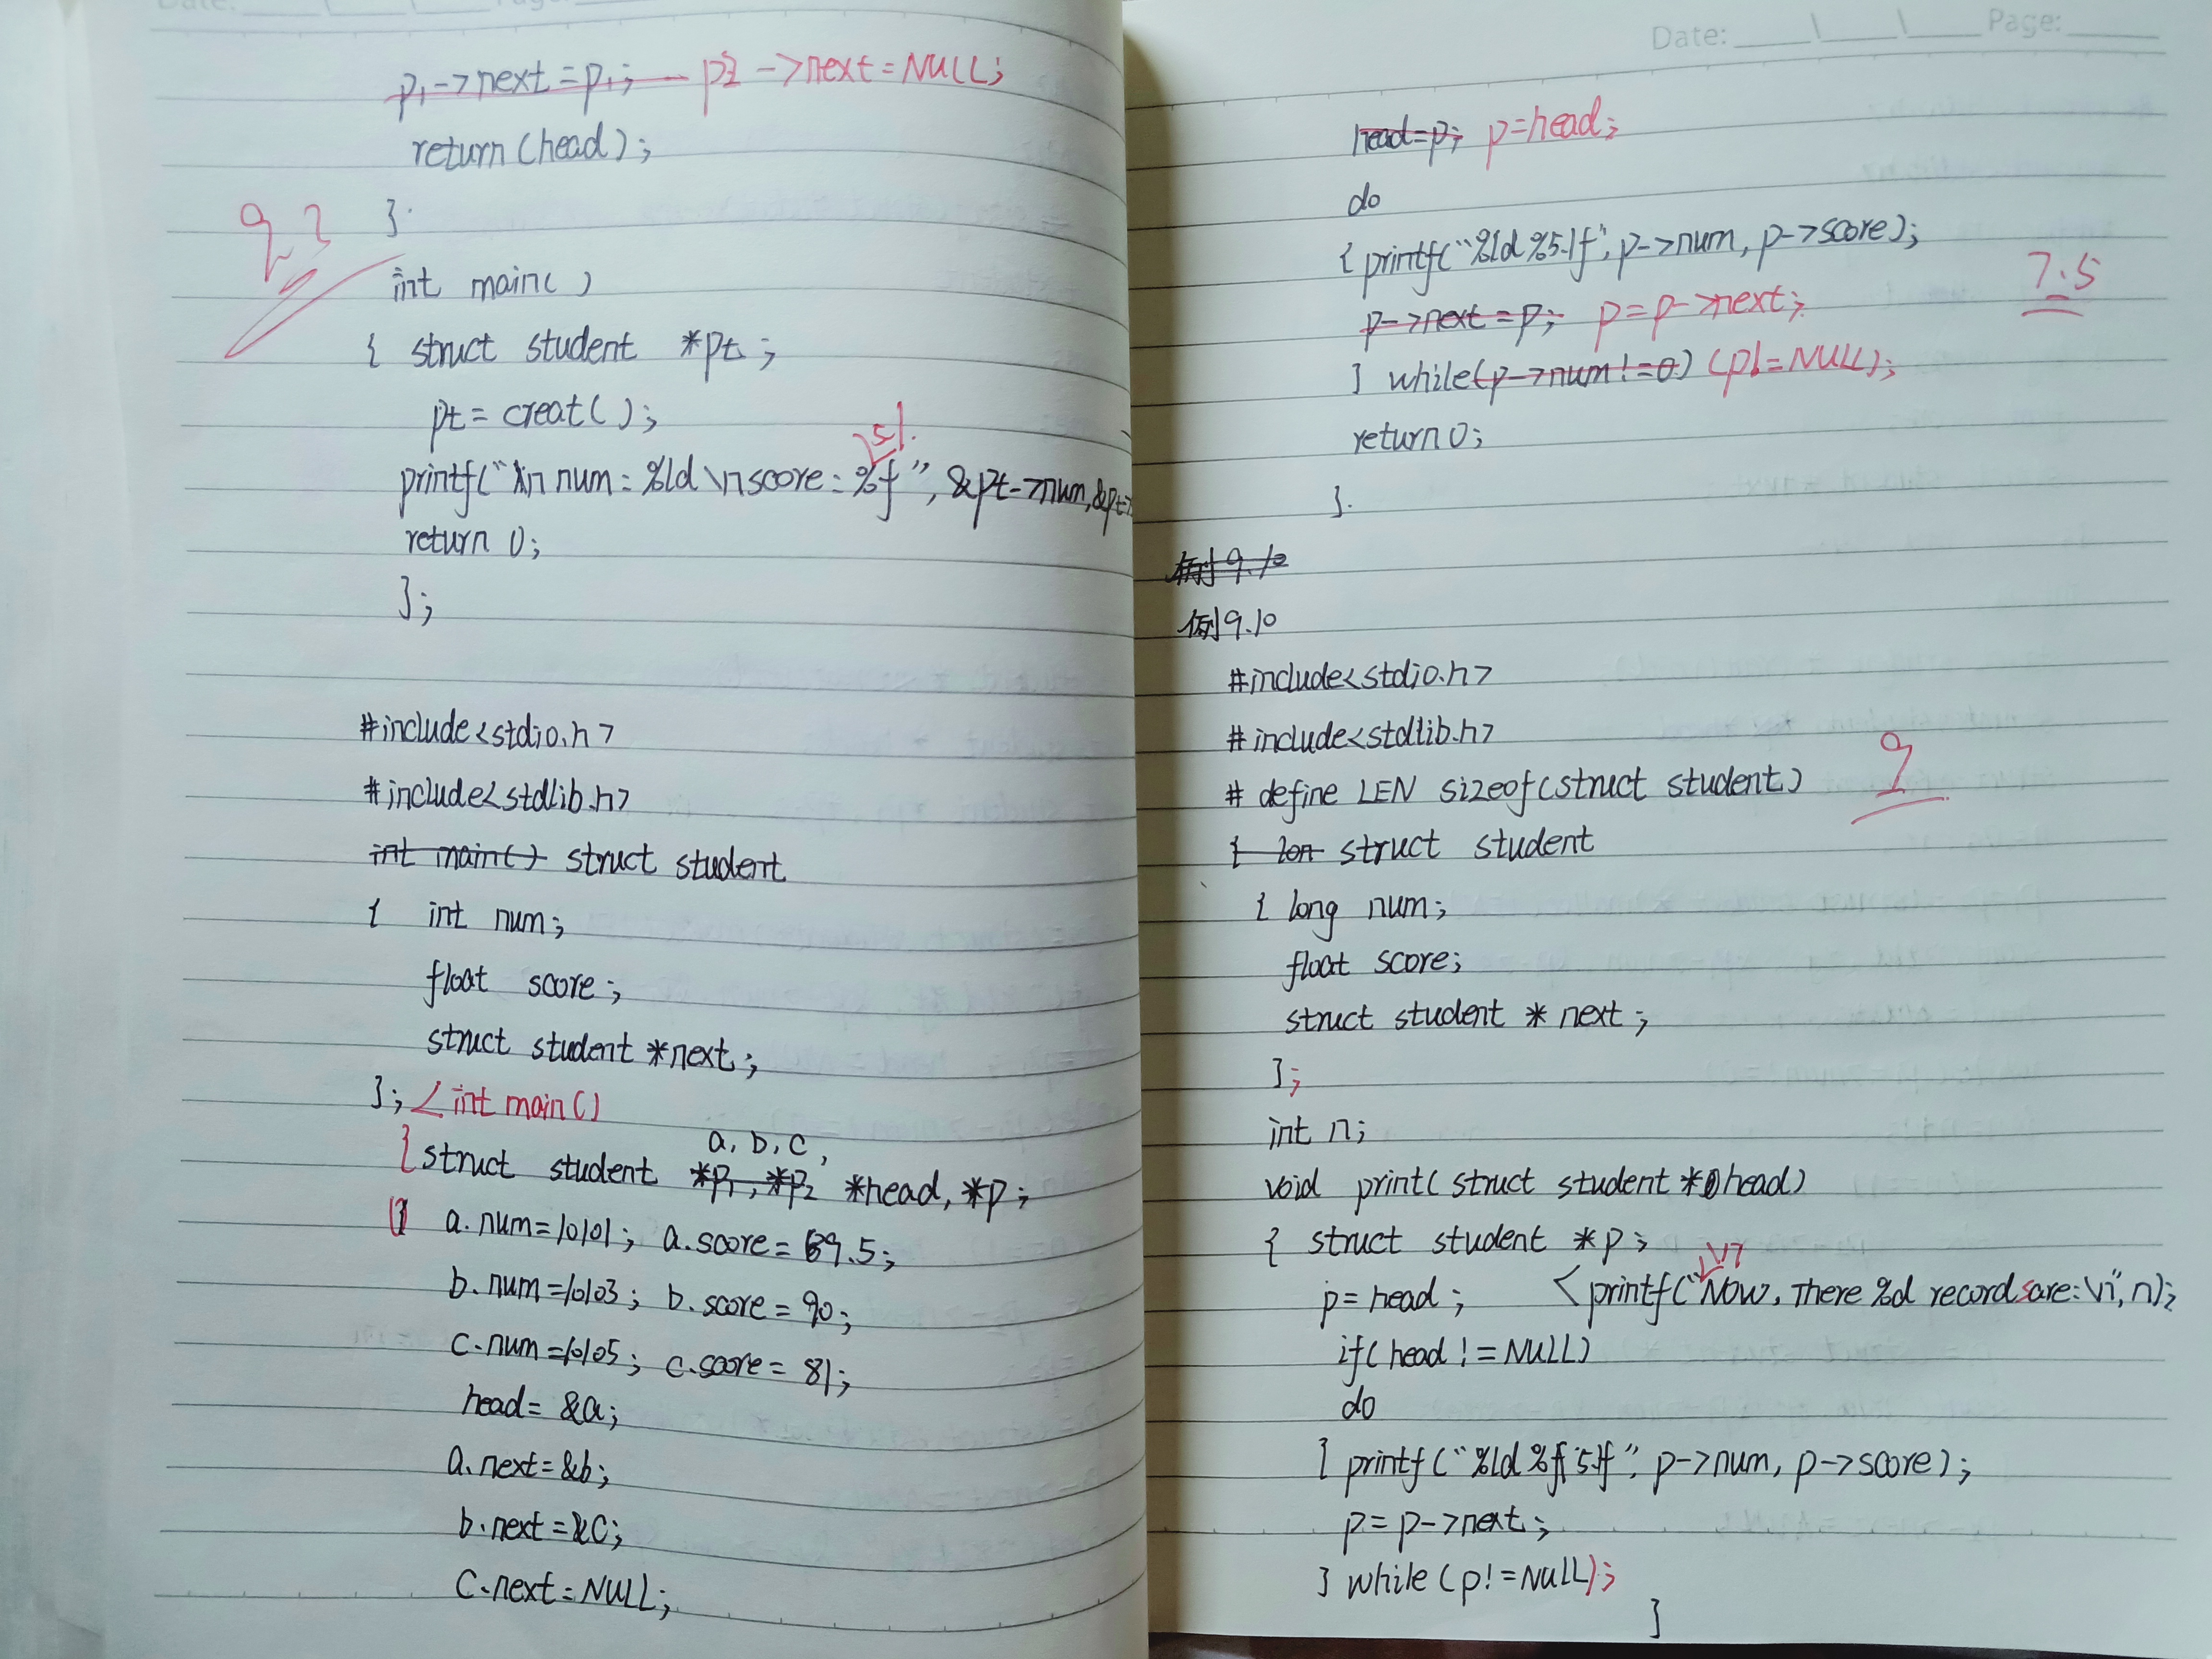 p1->next=p1; p2->next=NULL;
return(head);
}
int main()
{ struct student *pt;
pt=creat();
5.1
printf("\n num=%ld \n score=%f", &pt->num,&pt->
return 0;
};
#include<stdio.h>
#include<stdlib.h>
int main() struct student
{ int num;
float score;
struct student *next;
}; int main()
a, b, c,
{struct student *p1, *p2 *head, *p;
a.num=10101; a.score=89.5;
b.num=10103; b.score=90;
c.num=10105; c.score=81;
head=&a;
a.next=&b;
b.next=&c;
c.next=NULL;
Date: Page:
head=p; p=head;
do
{ printf("%ld %5.1f", p->num, p->score);
7.5
p->next=p; p=p->next;
} while(p->num!=0) (p!=NULL);
return 0;
}
例9.10
例9.10
#include<stdio.h>
#include<stdlib.h>
# define LEN sizeof(struct student)
9
{ lon struct student
{ long num;
float score;
struct student * next;
};
int n;
void print(struct student *head)
{ struct student *p;
\n
p=head; printf("Now, There %d records are:\n", n);
if(head!=NULL)
do
{ printf("%ld %5.1f", p->num, p->score);
p=p->next;
} while(p!=NULL);
}